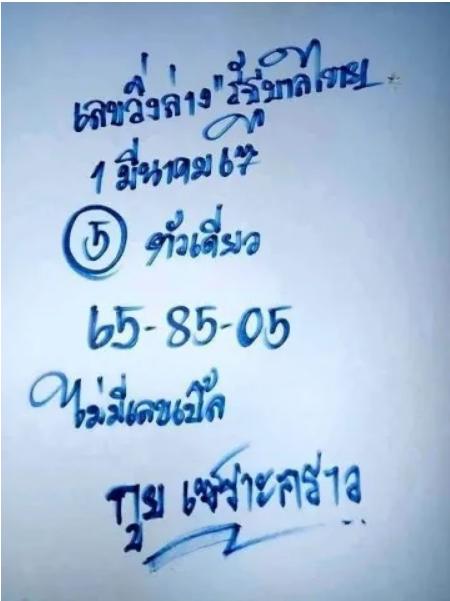 เลขวิ่งล่าง "รัฐบาลไทย
1 มีนาคม 67
5 ตัวเดียว
65-85-05
ไม่มีเลขเบิ้ล
กุย